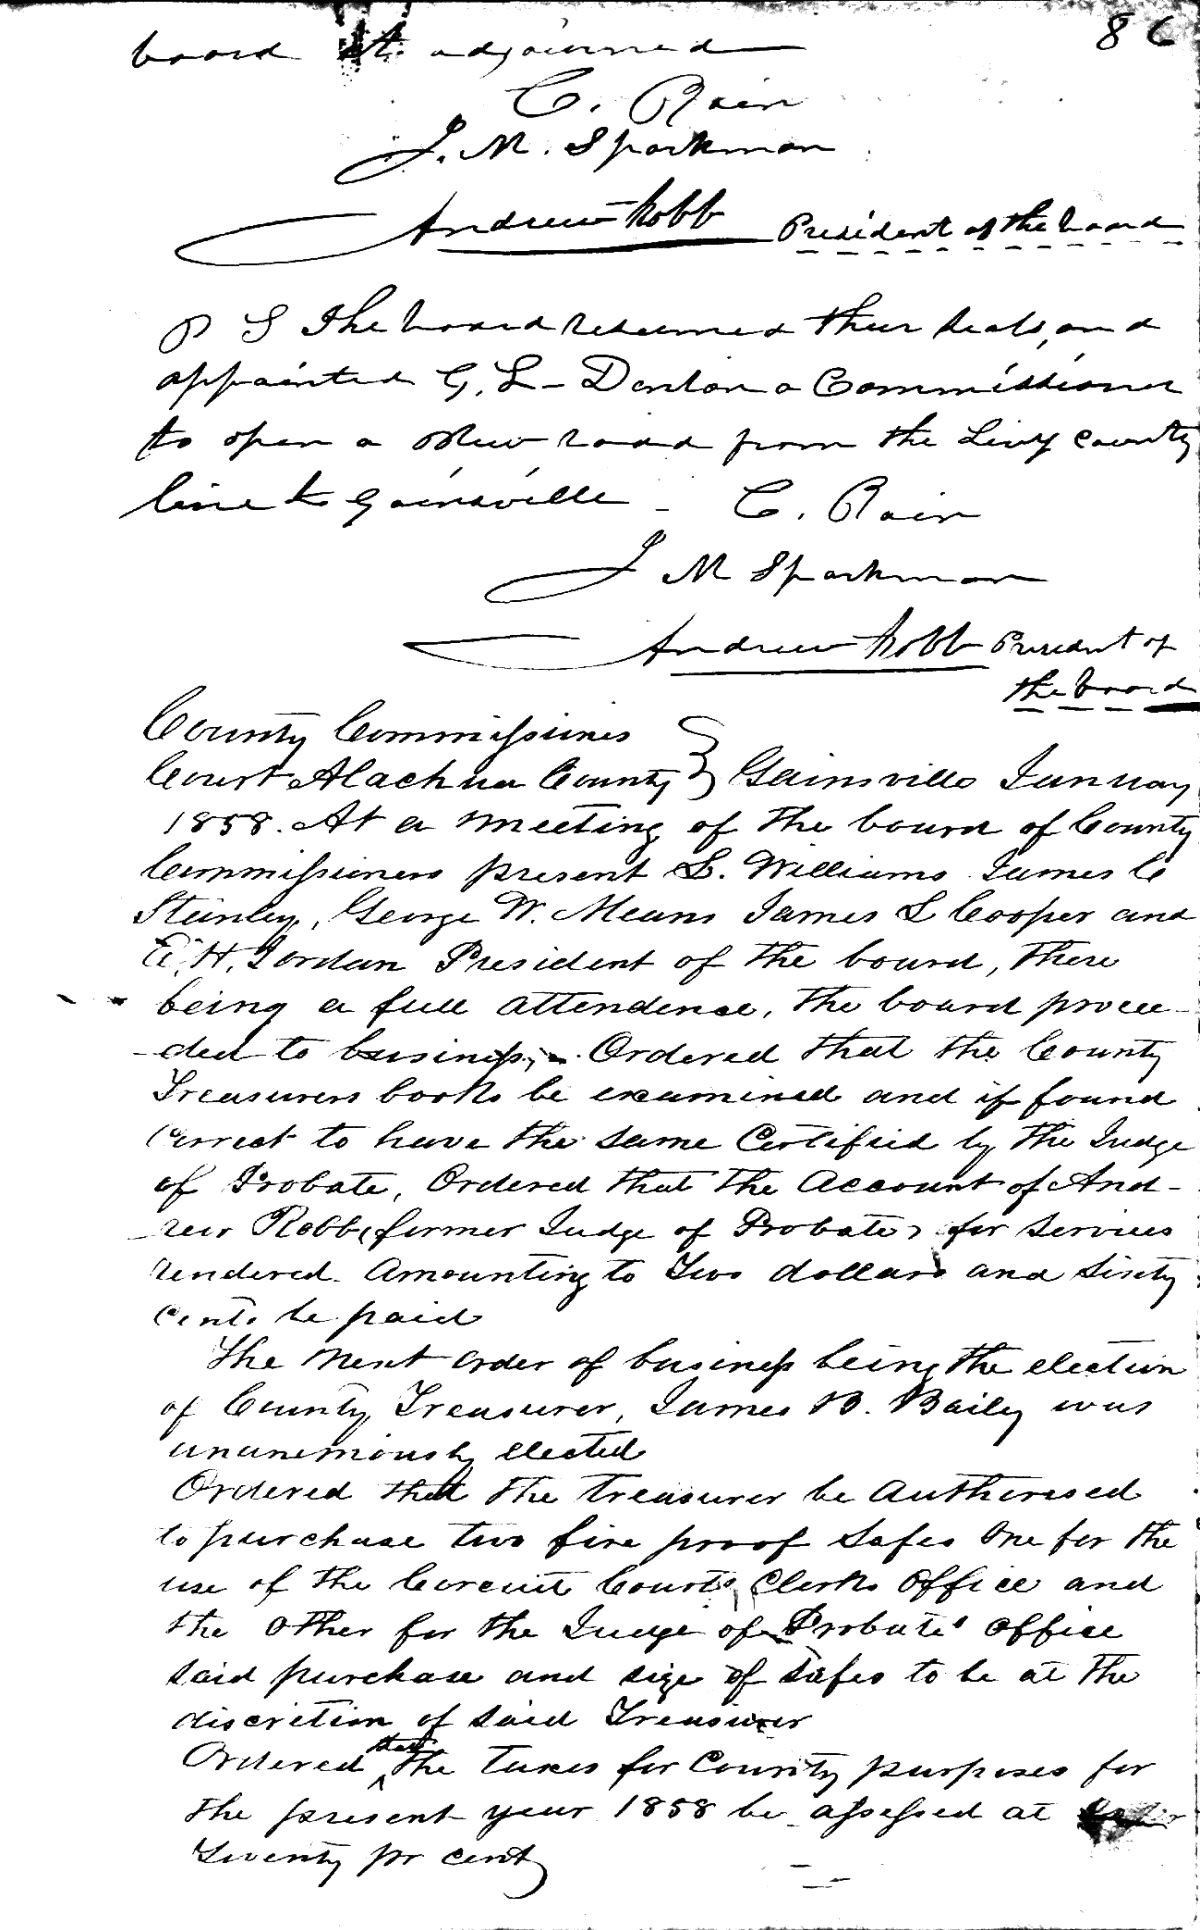 86
board it adjourned
C. Rain
J. M. Sparkman
Andrew Robb President of the board
P S The board resumed their seats, and
appointed G. L. Denton a Commissioner
to open a New road from the Livy county
line to Gainsville - C. Rain
J M Sparkman
Andrew Robb President of
the board
County Commissiners
Court Alachua County } Gainsville January
1858. At a meeting of the board of County
Commissioners present S. Williams James C
Stanley, George W. Means James S Cooper and
E. H. Jordan President of the board, there
being a full attendence, the board procee-
-ded to business, - Ordered that the County
Treasurers books be examined and if found
Correct to have the same Certified by the Judge
of Probate, Ordered that the Account of And-
-rew Robb, former Judge of Probate, for services
rendered Amounting to Two dollars and Sixty
Cents be paid
The Next order of business being the election
of County Treasurer, James B. Baily was
unanemously elected
Ordered that the Treasurer be Authorised
to purchase two fire proof Safes One for the
use of the Circuit Courts, Clerks Office and
the Other for the Judge of Probate's Office
Said purchase and size of Safes to be at the
discretion of said Treasurer
Ordered that the Taxes for County purposes for
the present year 1858 be assessed at
Twenty pr cent